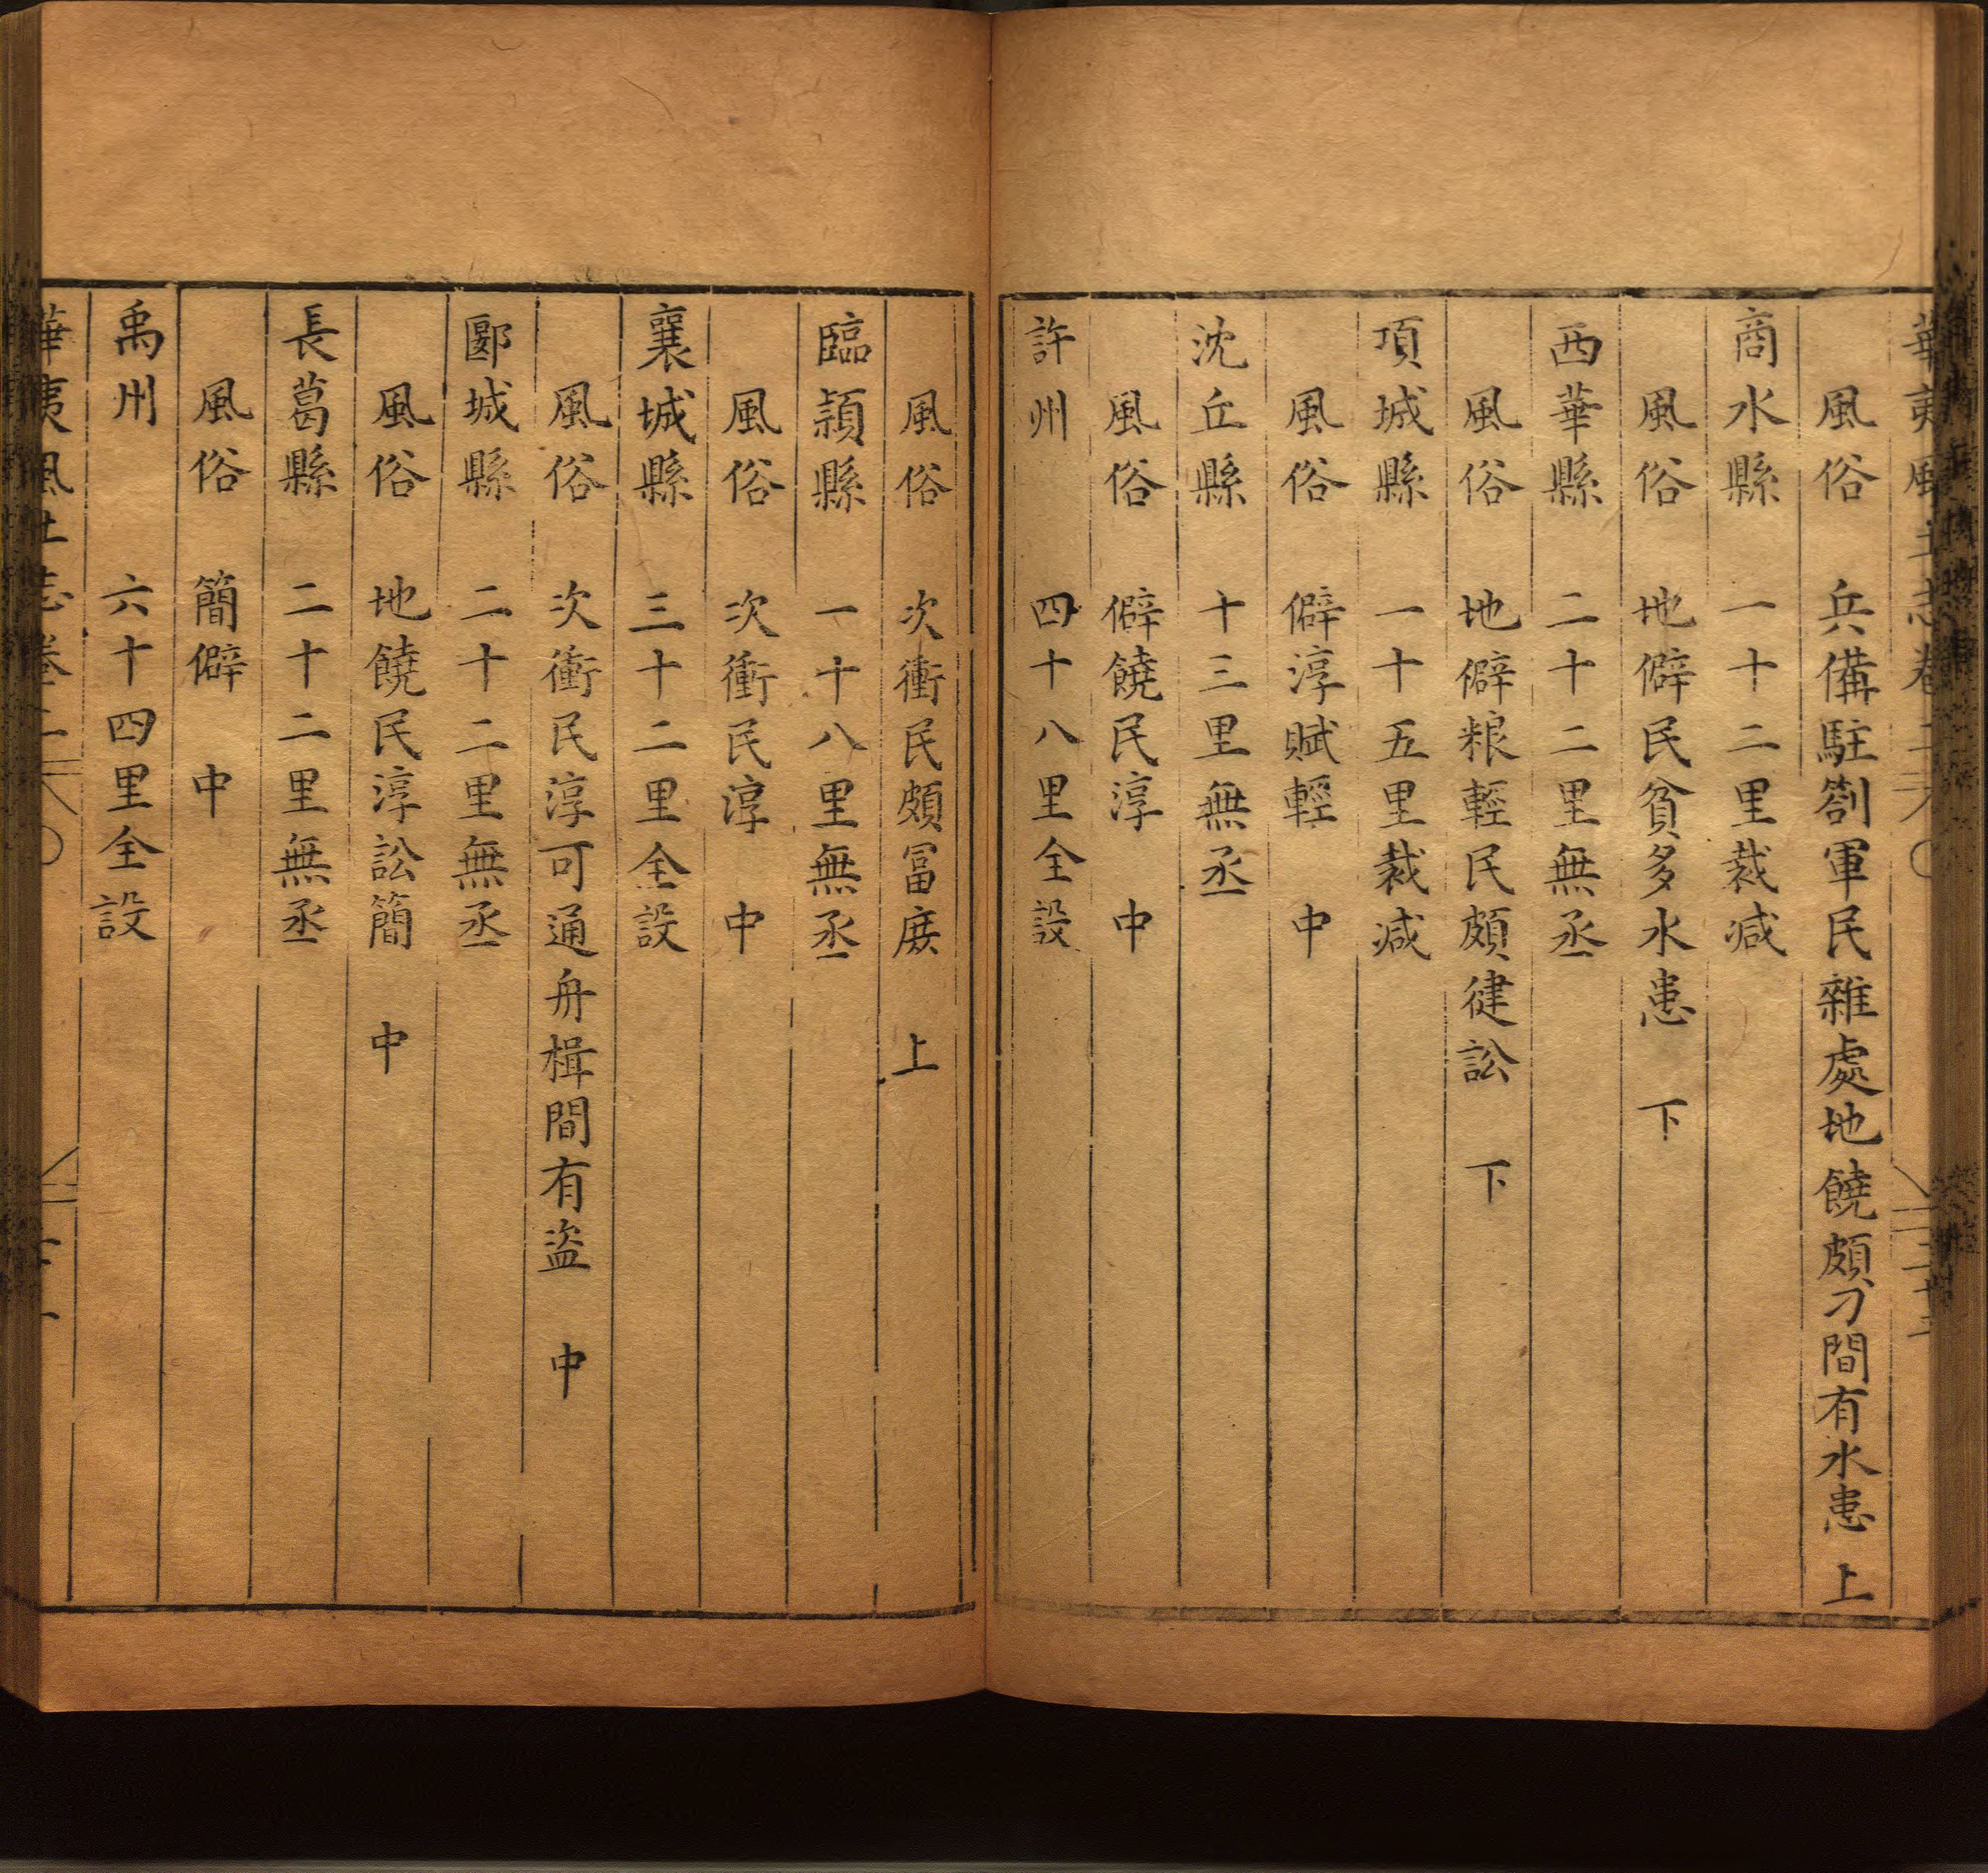 風俗 兵備駐劄軍民雜處地饒頗刁間有水患 上
商水縣 一十二里裁减
風俗 地僻民貧多水患 下
西華縣 二十二里無丞
風俗 地僻粮輕民頗健訟 下
項城縣 一十五里裁减
風俗 僻淳賦輕 中
沈丘縣 十三里無丞
風俗 僻饒民淳 中
許州 四十八里全設
風俗 次衝民頗冨庻 上
臨潁縣 一十八里無丞
風俗 次衝民淳 中
襄城縣 三十二里全設
風俗 次衝民淳可通舟楫間有盜 中
郾城縣 二十二里無丞
風俗 地饒民淳訟簡 中
長葛縣 二十二里無丞
風俗 簡僻 中
禹州 六十四里全設
華夷風土志卷二